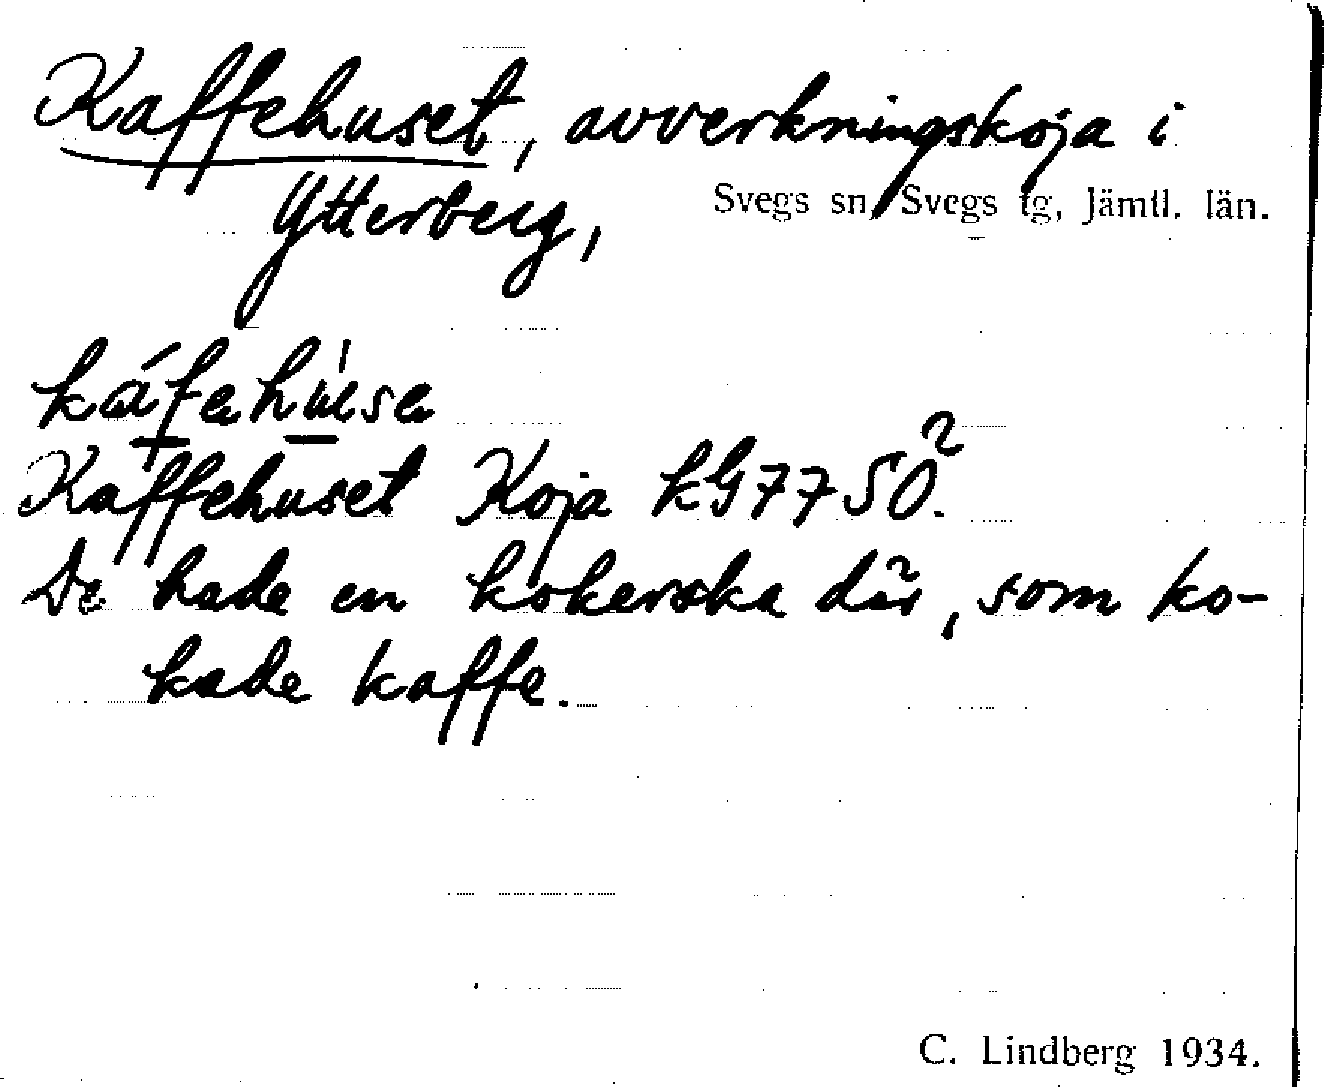 Kaffehuset, avverkningskoja i
Ytterberg, Svegs sn, Svegs tg, Jämtl. län.
Kaffehuset Koja
De hade en kokerska där, som ko-
kade kaffe.
C. Lindberg 1934.